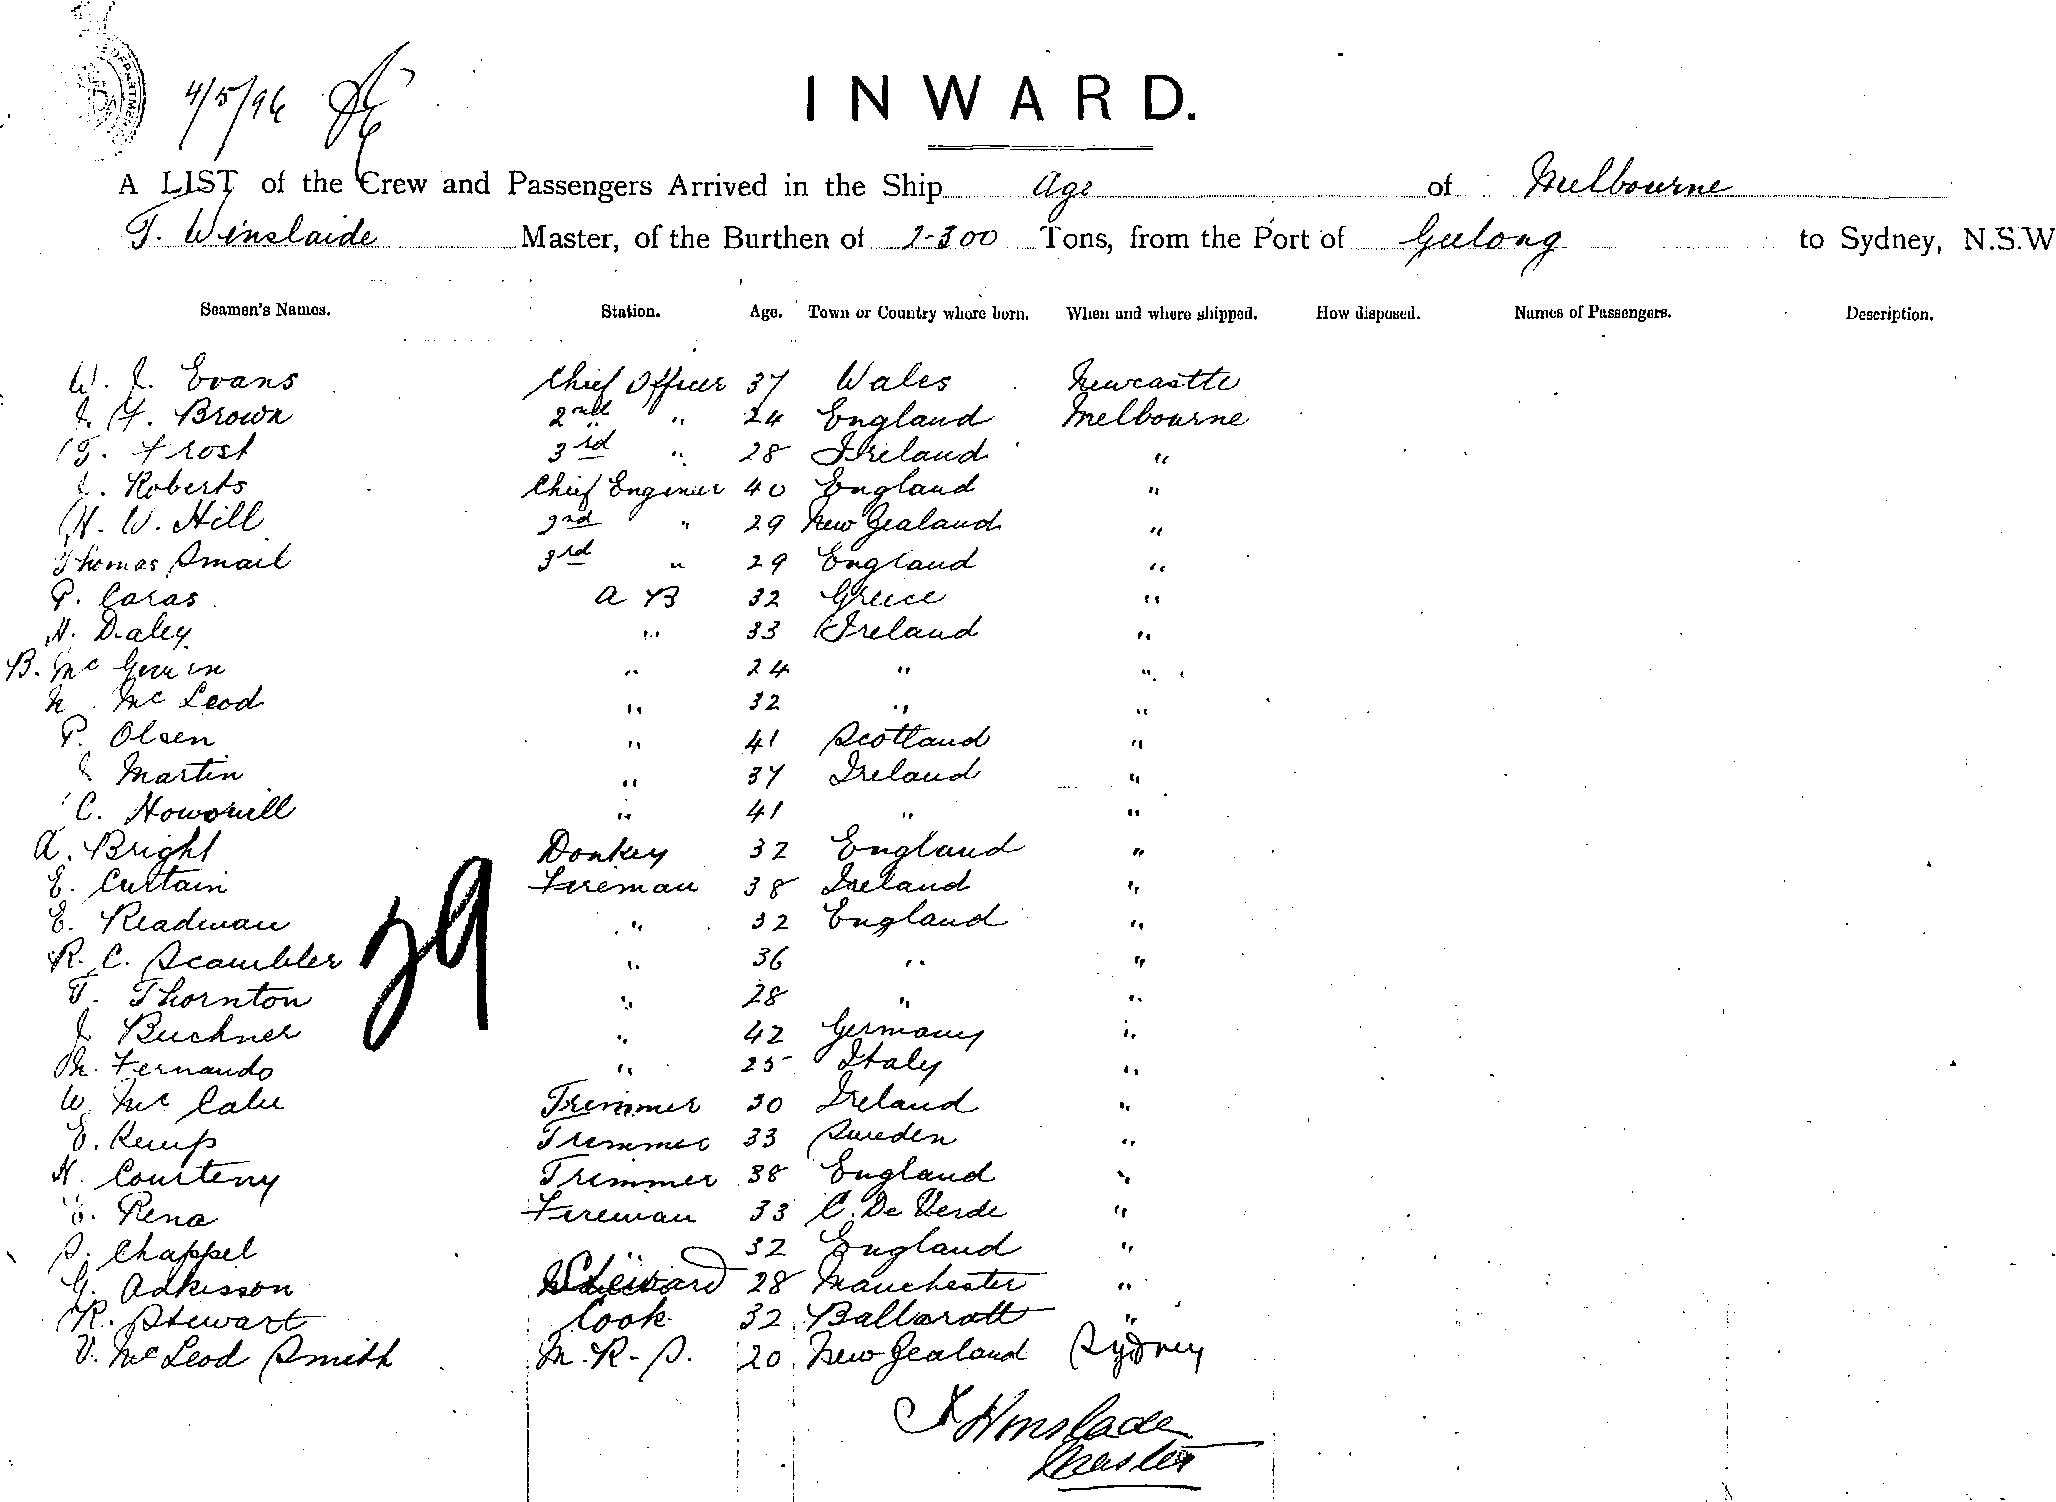 DEPARTMENT
4/5/96
INWARD.
A LIST of the Crew and Passengers Arrived in the Ship Age of Melbourne
T. Winslaide Master, of the Burthen of 2300 Tons, from the Port of Geelong to Sydney, N.S.W
Seamen's Names. Station. Age. Town or Country where born. When and where shipped. How disposed. Names of Passengers. Description.
W. J. Evans Chief Officer 37 Wales Newcastle
J. H. Brown 2nd " 24 England Melbourne
G. Frost 3rd " 28 Ireland "
J. Roberts Chief Engineer 40 England "
H. W. Hill 2nd " 29 New Zealand "
Thomas Smail 3rd " 29 England "
P. Caras A B 32 Greece "
H. Daley " 33 Ireland "
B. Mc " 24 " "
N. McLeod " 32 " "
P. Olsen " 41 Scotland "
J Martin " 37 Ireland "
C. " 41 " "
A. Bright Donkey 32 England "
E. Curtain Fireman 38 Ireland "
E. Readman " 32 England "
R. C. Scambler " 36 " "
T. Thornton " 28 " "
J. Buchner " 42 Germany "
M. Fernando " 25 Italy "
W. McCabe Trimmer 30 Ireland "
E. Kemp Trimmer 33 Sweden "
H. Courteny Trimmer 38 England "
Rena Fireman 33 C. De Verde "
S. Chappel " 32 England "
G. Adkisson Steward 28 Manchester "
R. Stewart Cook 32 Ballaratt "
V. McLeod Smith M. R. S. 20 New Zealand Sydney
29
T Winslade
Master